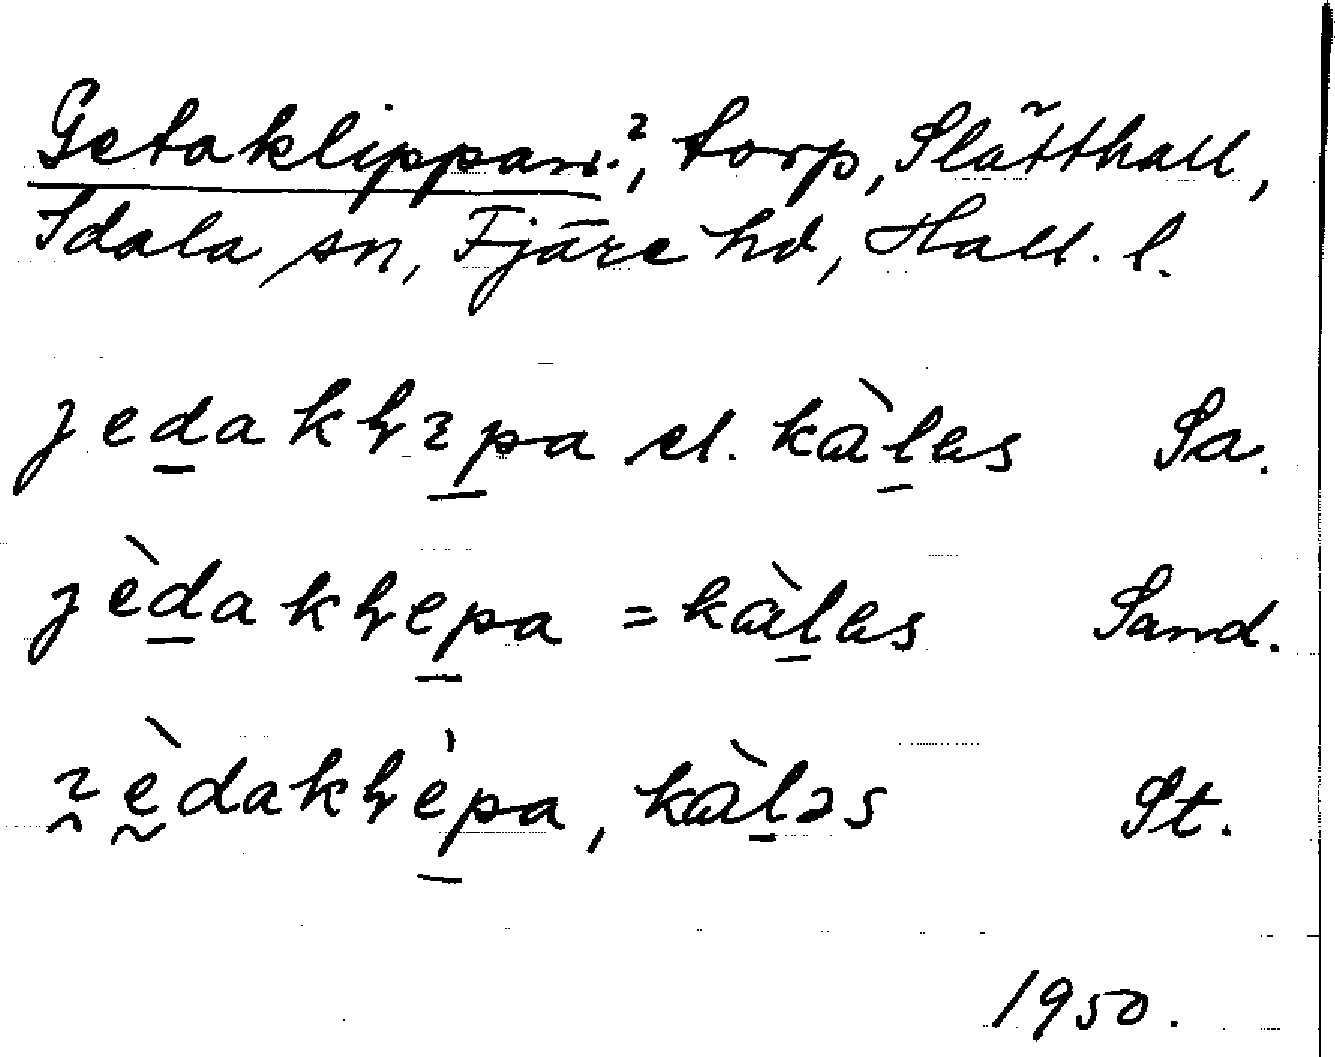 Getaklippan.², torp, Slätthall,
Idala sn, Fjäre hd, Hall. l.
jedakłɩpa el. kàlas Sa.
jèdakłepa = kàlas Sand.
ɩèdakłépa, kàləs St.
1950.